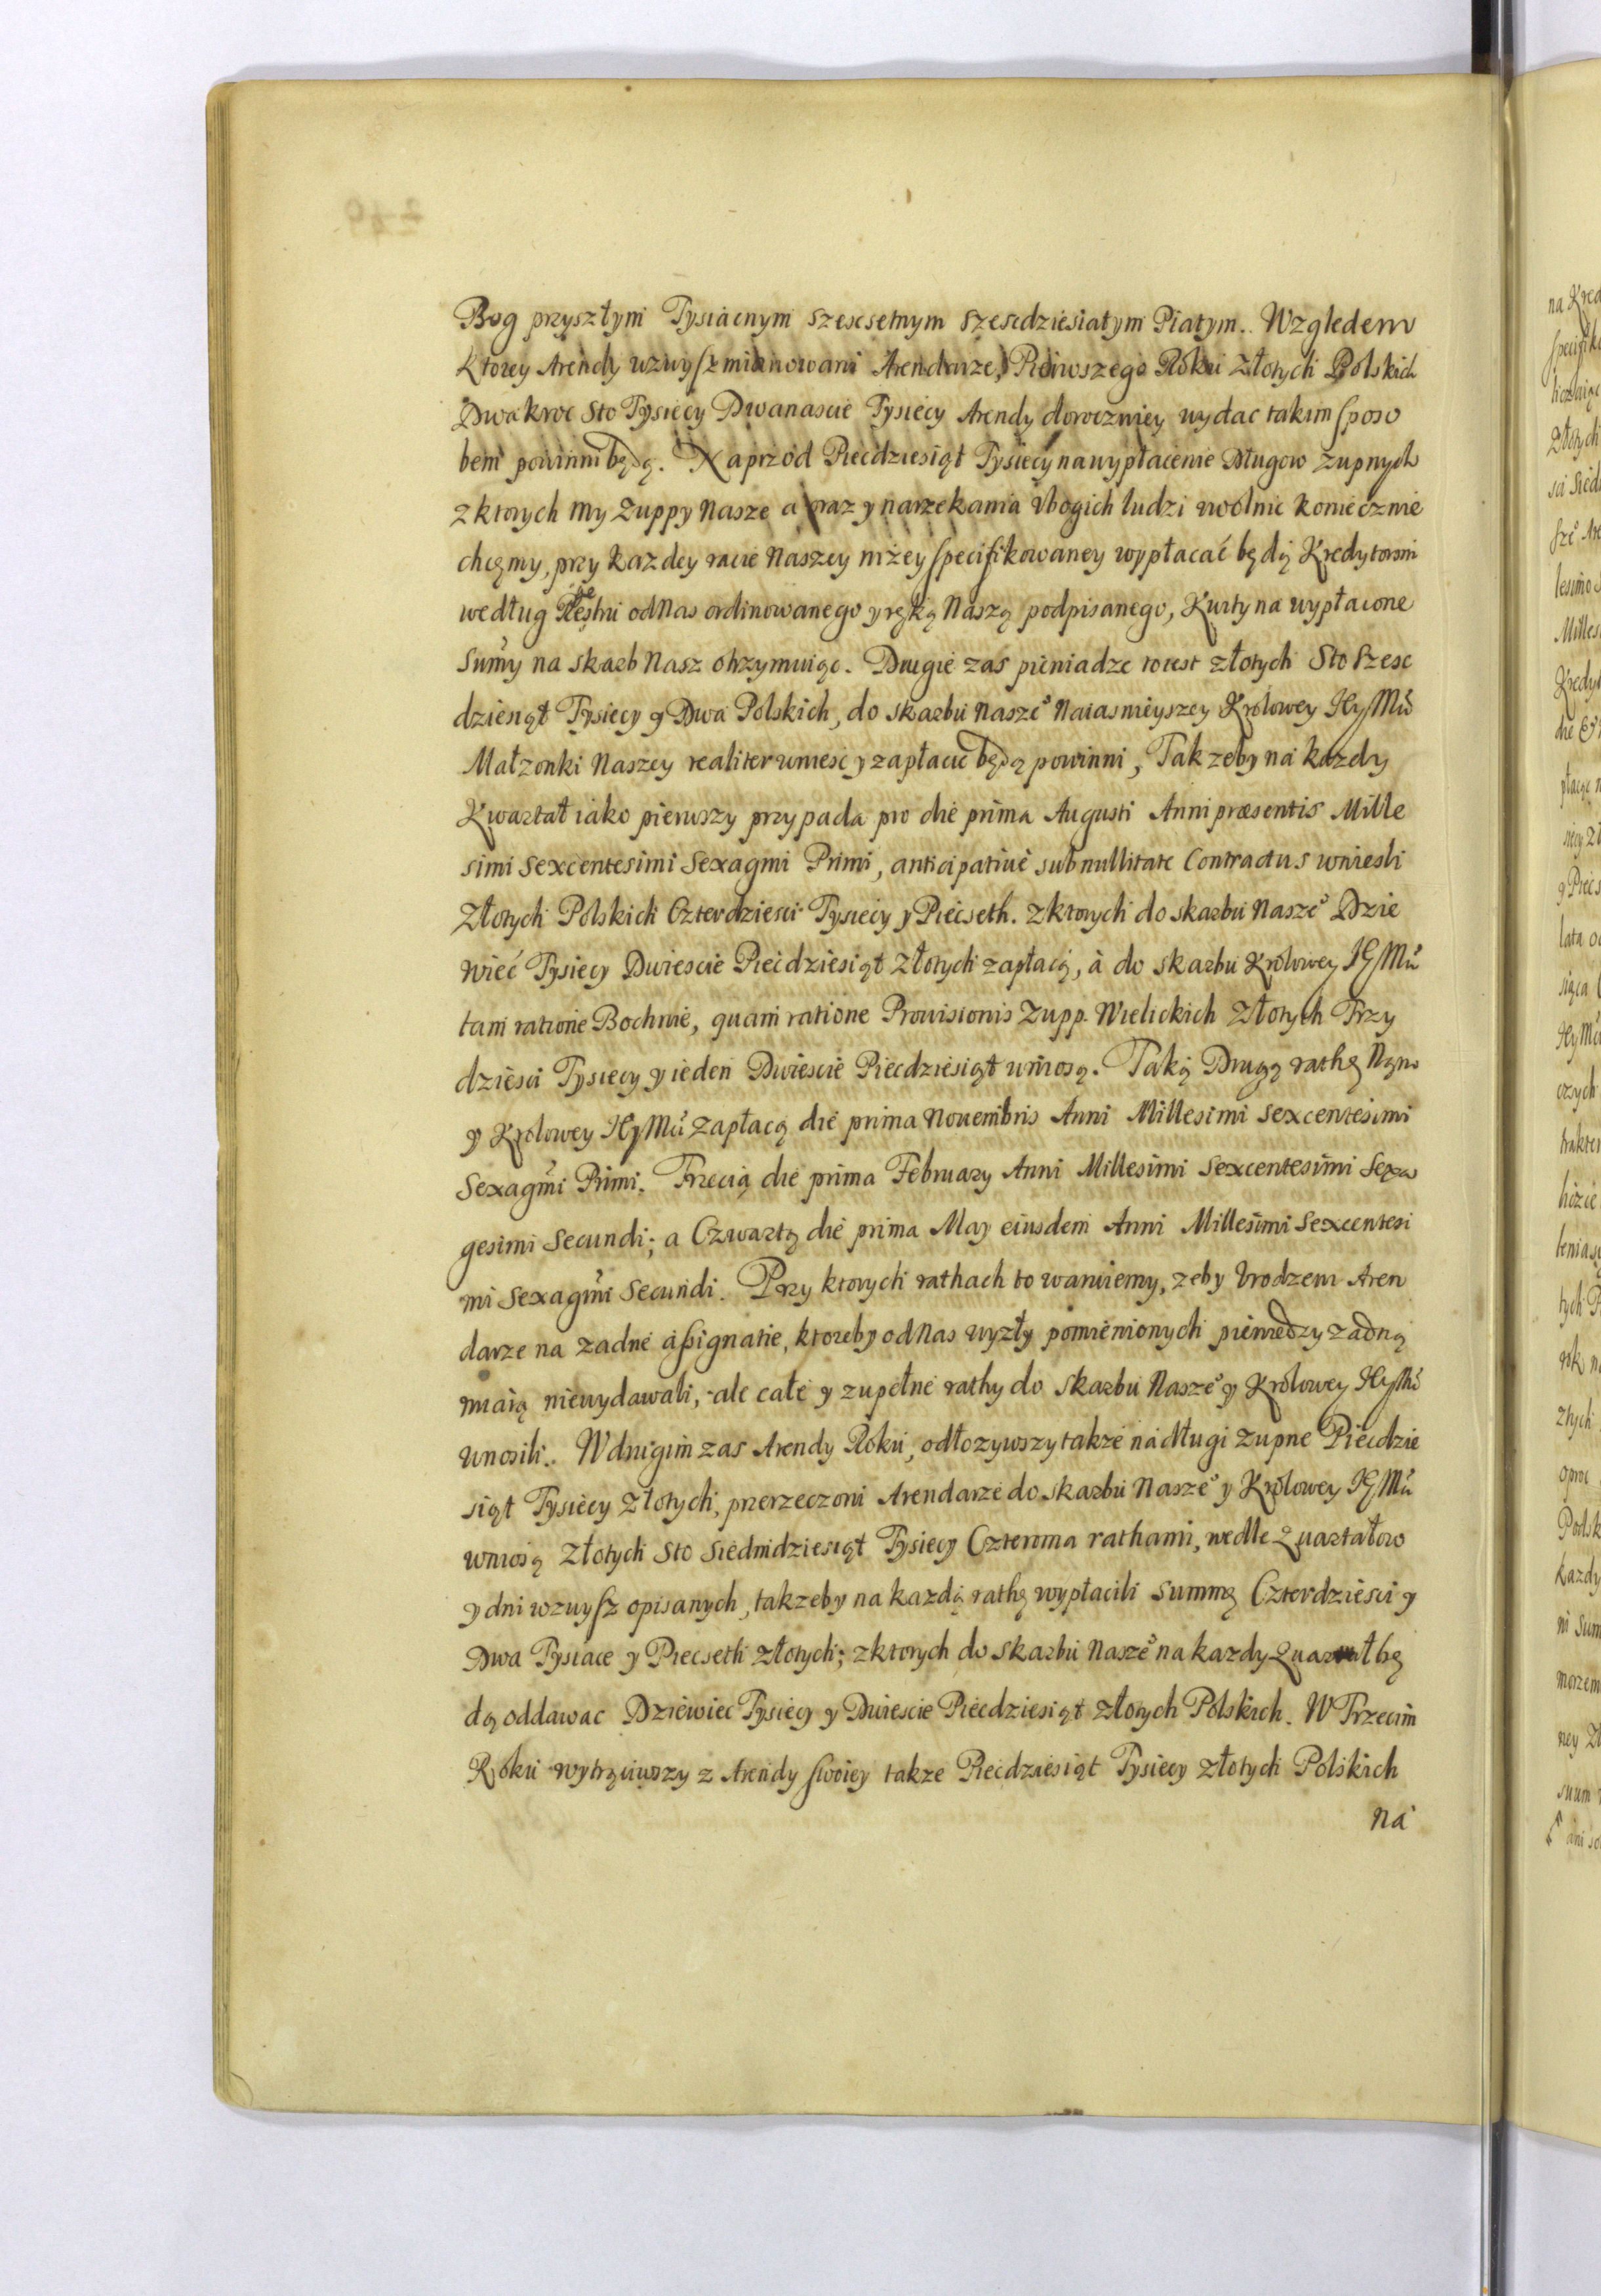 Bog przyszłym Tysiacnym szescsetnym szescdziesiatym Piatym. Względem
Ktorey Arendy wzwysz mianowani Arendarze, Pierwszego Roku Złotych Polskich
Dwakroc Sto Tysięcy Dwanascie Tysięcy Arendy doroczniey wydac takim sposo
bem powinni będą. Naprzód Piecdziesiąt Tysięcy na wypłacenie Długow Zupnych
z ktorych My Zuppy Nasze a oraz y narzekania Vbogich ludzi uwolnic koniecznie
chcęmy, przy kazdey racie Naszey niżey specifikowaney wypłacać będą Kredytorom
według Rejestru od Nas ordinowanego y ręką Naszą podpisanego, Kwity na wypłacone
Summy na skarb Nasz otrzymuiąc. Drugie zas pieniadze to iest złotych Sto szesc
dziesiąt Tysiecy y Dwa Polskich, do skarbu Nasze° Naiasnieyszey Krolowey JeyMci
Małzonki Naszey realiter wniesc y zapłacic będą powinni, Tak zeby na kazdy
Kwartał iako pierwszy przypada pro die prima Augusti Anni præsentis Mille
simi Sexcentesimi Sexagmi Primi, anticipative sub nullitate Contractus wniesli
Złotych Polskich Czterdziesci Tysięcy y Piecseth. z ktorych do skarbu Nasze° Dzie
więć Tysięcy Dwiescie Piecdziesiąt Złotych zapłacą, a do skarbu Krolowey JeyMci
tam ratione Bochnie, quam ratione Provisionis Zupp. Wielickich Złotych Trzy
dziesci Tysięcy y ieden Dwiescie Piecdziesiąt wniosą. Taką Drugą rathę Nam
y Krolowey JeyMci zapłacą die prima Novembris Anni Millesimi Sexcentesimi
Sexagmi Primi. Trzecią die prima February Anni Millesimi Sexcentesimi Sexa
gesimi Secundi; a Czwartą die prima May eiusdem Anni Millesimi Sexcentesi
mi Sexagmi Secundi. Przy ktorych rathach to waruiemy, zeby Vrodzeni Aren
darze na zadne assignatie, ktoreby od Nas wyszły pomienionych pieniedzy zadną
miarą niewydawali, ale całe y zupełne rathy do skarbu Nasze° y Krolowey JeyMci
wnosili. W drugim zas Arendy Roku, odłozywszy takze na długi zupne Piecdzie
siąt Tysięcy Złotych, przerzeczoni Arendarze do skarbu Nasze° y Krolowey JeyMci
wniosą Złotych Sto Siedmdziesiąt Tysięcy Czterema rathami, wedle Quartałow
y dni wzwysz opisanych, tak zeby na kazdą rathę wypłacili Summę Czterdziesci y
Dwa Tysiace y Piecseth złotych; z ktorych do skarbu Nasze° na kazdy Quartał bę
dą oddawac Dziewiec Tysięcy y Dwiescie Piecdziesiąt złotych Polskich. W Trzecim
Roku wytrąciwszy z Arendy swoiey takze Piecdziesiąt Tysięcy Złotych Polskich
na